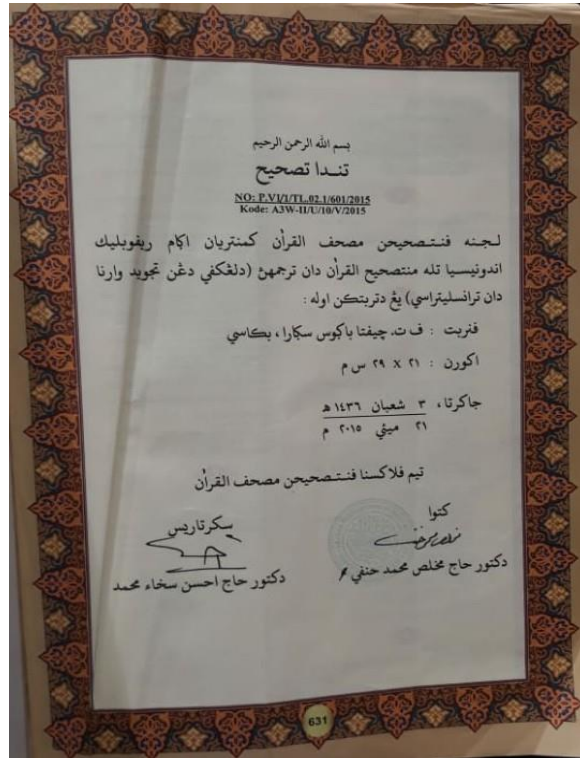 بسم الله الرحمن الرحيم
تندا تصحيح
NO: P.VI/1/TL.02.1/601/2015
Kode: A3W-II/U/10/V/2015
لجنه فنتصحيحن مصحف القرأن كمنتريان اݢام ريفوبليك
اندونيسيا تله منتصحيح القرأن دان ترجمهن (دلڠكفي دڠن تجويد وارنا
دان ترانسليتراسي) يڠ دتربتكن اوله :
فنربت : ف ت. چيفتا باݢوس سݢارا ، بكاسي
اكورن : ٢١ x ٢٩ س م
جاكرتا، ٣ شعبان ١٤٣٦ ه
٢١ ميئي ٢٠١٥ م
تيم فلاكسنا فنتصحيحن مصحف القرأن
كتوا
سكرتاريس
دكتور حاج مخلص محمد حنفي
دكتور حاج احسن سخاء محمد
631